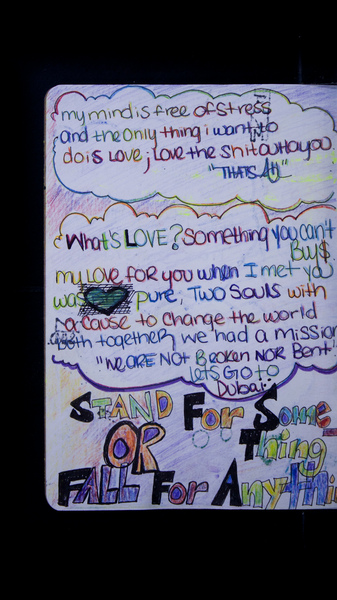 my mind is free of stress
and the only thing i want to
do is LOVE, i Love the shit outta you.
"THATS All"
What's LOVE? Something you can't
Buy$.
my LOVE for you when I met you
was pure, Two Souls with
a cause to change the world
Both together, we had a mission
"We are NOT Broken NOR Bent"
Let's Go to
Dubai.
STAND For Some
OR Thing
FALL For Anythin